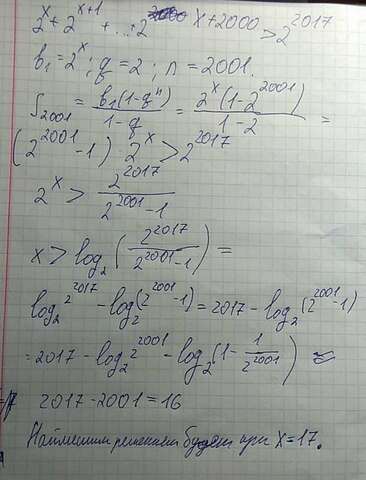 2^x + 2^{x+1} + ... + 2^{x+2000} > 2^{2017}
b₁ = 2^x; q = 2; n = 2001.
S_{2001} = \frac{b₁(1-q^n)}{1-q} = \frac{2^x(1-2^{2001})}{1-2} =
(2^{2001} - 1) · 2^x > 2^{2017}
2^x > \frac{2^{2017}}{2^{2001} - 1}
x > log₂(\frac{2^{2017}}{2^{2001} - 1}) =
log₂ 2^{2017} - log₂(2^{2001} - 1) = 2017 - log₂(2^{2001} - 1)
= 2017 - log₂ 2^{2001} - log₂(1 - \frac{1}{2^{2001}}) ≈
2017 - 2001 = 16
Наименшим решением будет при x = 17.